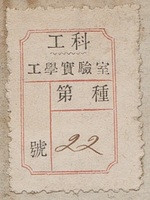 工科
工學實驗室
第 種
號 22